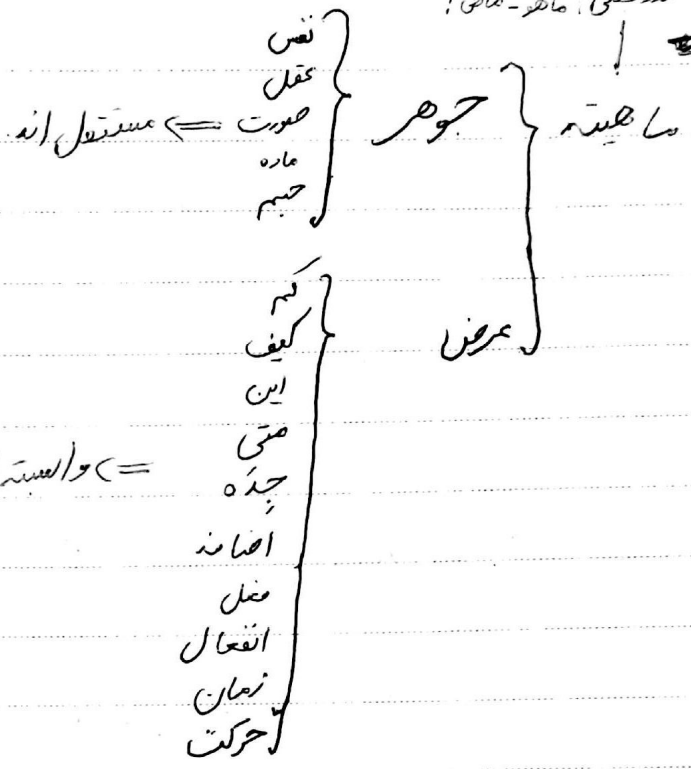 ماهو - ماهی؟
ماهیته
جوهر
نفس
عقل
صورت => مستقل اند.
ماده
جسم
عرض
کم
کیف
این
متی
جِدَه => وابسته
اضافه
فعل
انفعال
زمان
حرکت